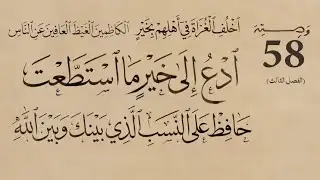 وصية
58
(الفصل الثالث)
اخلف الغزاة في أهلهم بخير الكاظمين الغيظ العافين عن الناس
ادع إلى خير ما استطعت
حافظ على النسب الذي بينك وبين الله